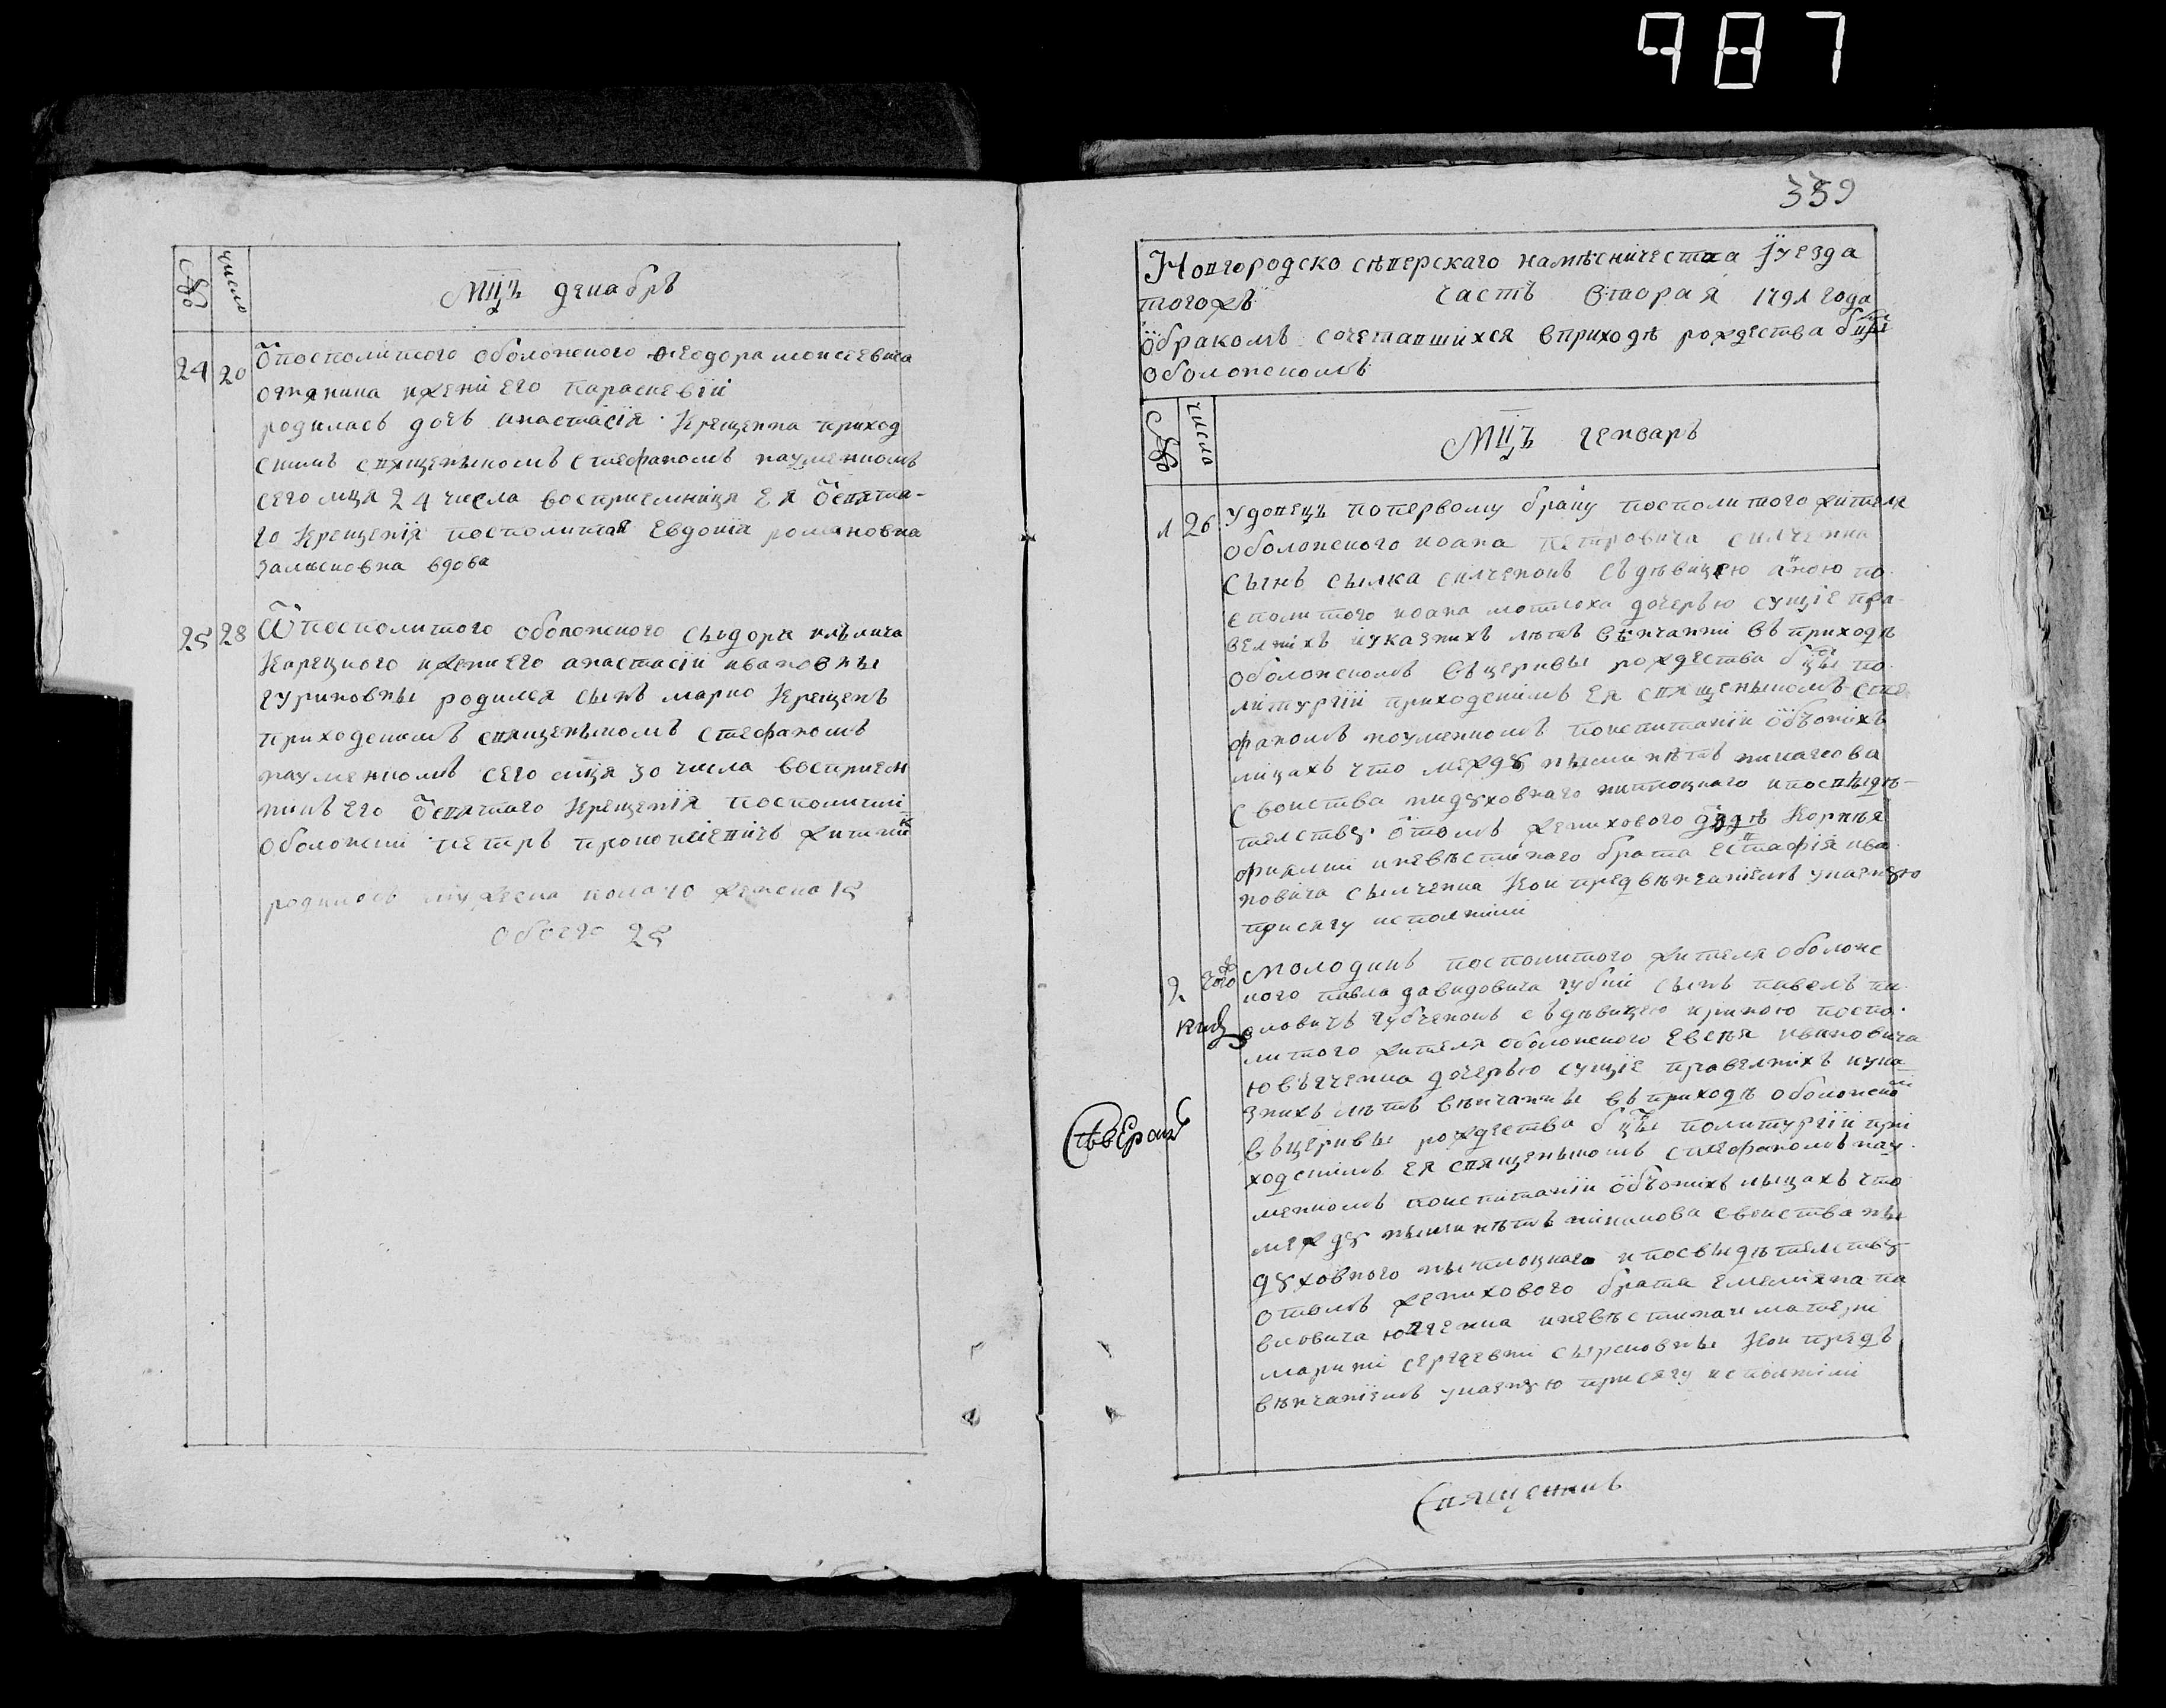 987
№
число
МЦЪ декабрь
24 20 ѿ посполитого оболонского ѳеодора моисеевича
отянина и жени его параскевіи
родилась дочь анастасія крещенна приход
скимъ священыкомъ стефаномъ науменкомъ
сего мця 24 числа восприемница ея ѿ свята-
го крещенія посполитая евдокія романовна
вдова
25 28 ѿ посполитого оболонского сыдора
карецкого и жени его анастасіи ивановны
гуриновны родился сынъ марко крещенъ
приходскимъ священыкомъ стефаномъ
науменкомъ сего мця 30 числа восприем
никъ его ѿ святаго крещенія посполитий
оболонский петръ прокопіевичъ
родилось мужеска пола 10 женска 15
обоего 25
359
Новгородско сѣверскаго намѣсничества уезда
тогожъ часть вторая 1791 года
ѡ бракомъ сочетавшихся в приходѣ рождества бцы
оболонскомъ
№
число
МЦЪ генварь
1 26 удовецъ по первому браку посполитого жителя
оболонского иоана петровича силченка
сынъ сылка силченокъ съ дѣвицею анною по
сполитого иоана мотлоха дочерью сущіе пра
велнихъ и указнихъ лѣтъ вѣнчанни въ приходѣ
оболонскомъ въ церквы рождества бцы по
литургіи приходскимъ ея священыкомъ сте
фаномъ науменкомъ по испитаніи ѡбоихъ
лицахъ что между нымы нѣтъ никагсова
своиства ни духовнаго ни плоцкаго и по свыдѣ-
телству ѡ томъ женихового дядѣ корнѣя
и невѣстинаго брата естафія ива
новича кои предъ вѣнчаніемъ указную
присягу исполнили
2 того до молодикъ посполитого жителя оболонс
кого павла давидовича губки сынъ павелъ па
вловичъ губченокъ съ дѣвицею ириною поспо
литого жителя оболонского евсѣя ивановича
ювченка дочерью сущіе правелнихъ и ука
знихъ лѣтъ вѣнчанны въ приходѣ оболонском
въ церквы рождества бцы по литургіи при
ходскимъ ея священыкомъ стефаномъ нау
менкомъ по испитаніи ѡбоихъ лыцахъ что
между нымы нѣтъ никакова своиства ны
духовного ны плоцкаго и по свыдѣтелству
о томъ женихового брата емеляна па
вловича и невѣстинаи матери
марини сергеевни кои предъ
вѣнчаніемъ указную присягу исполнили
Священникъ